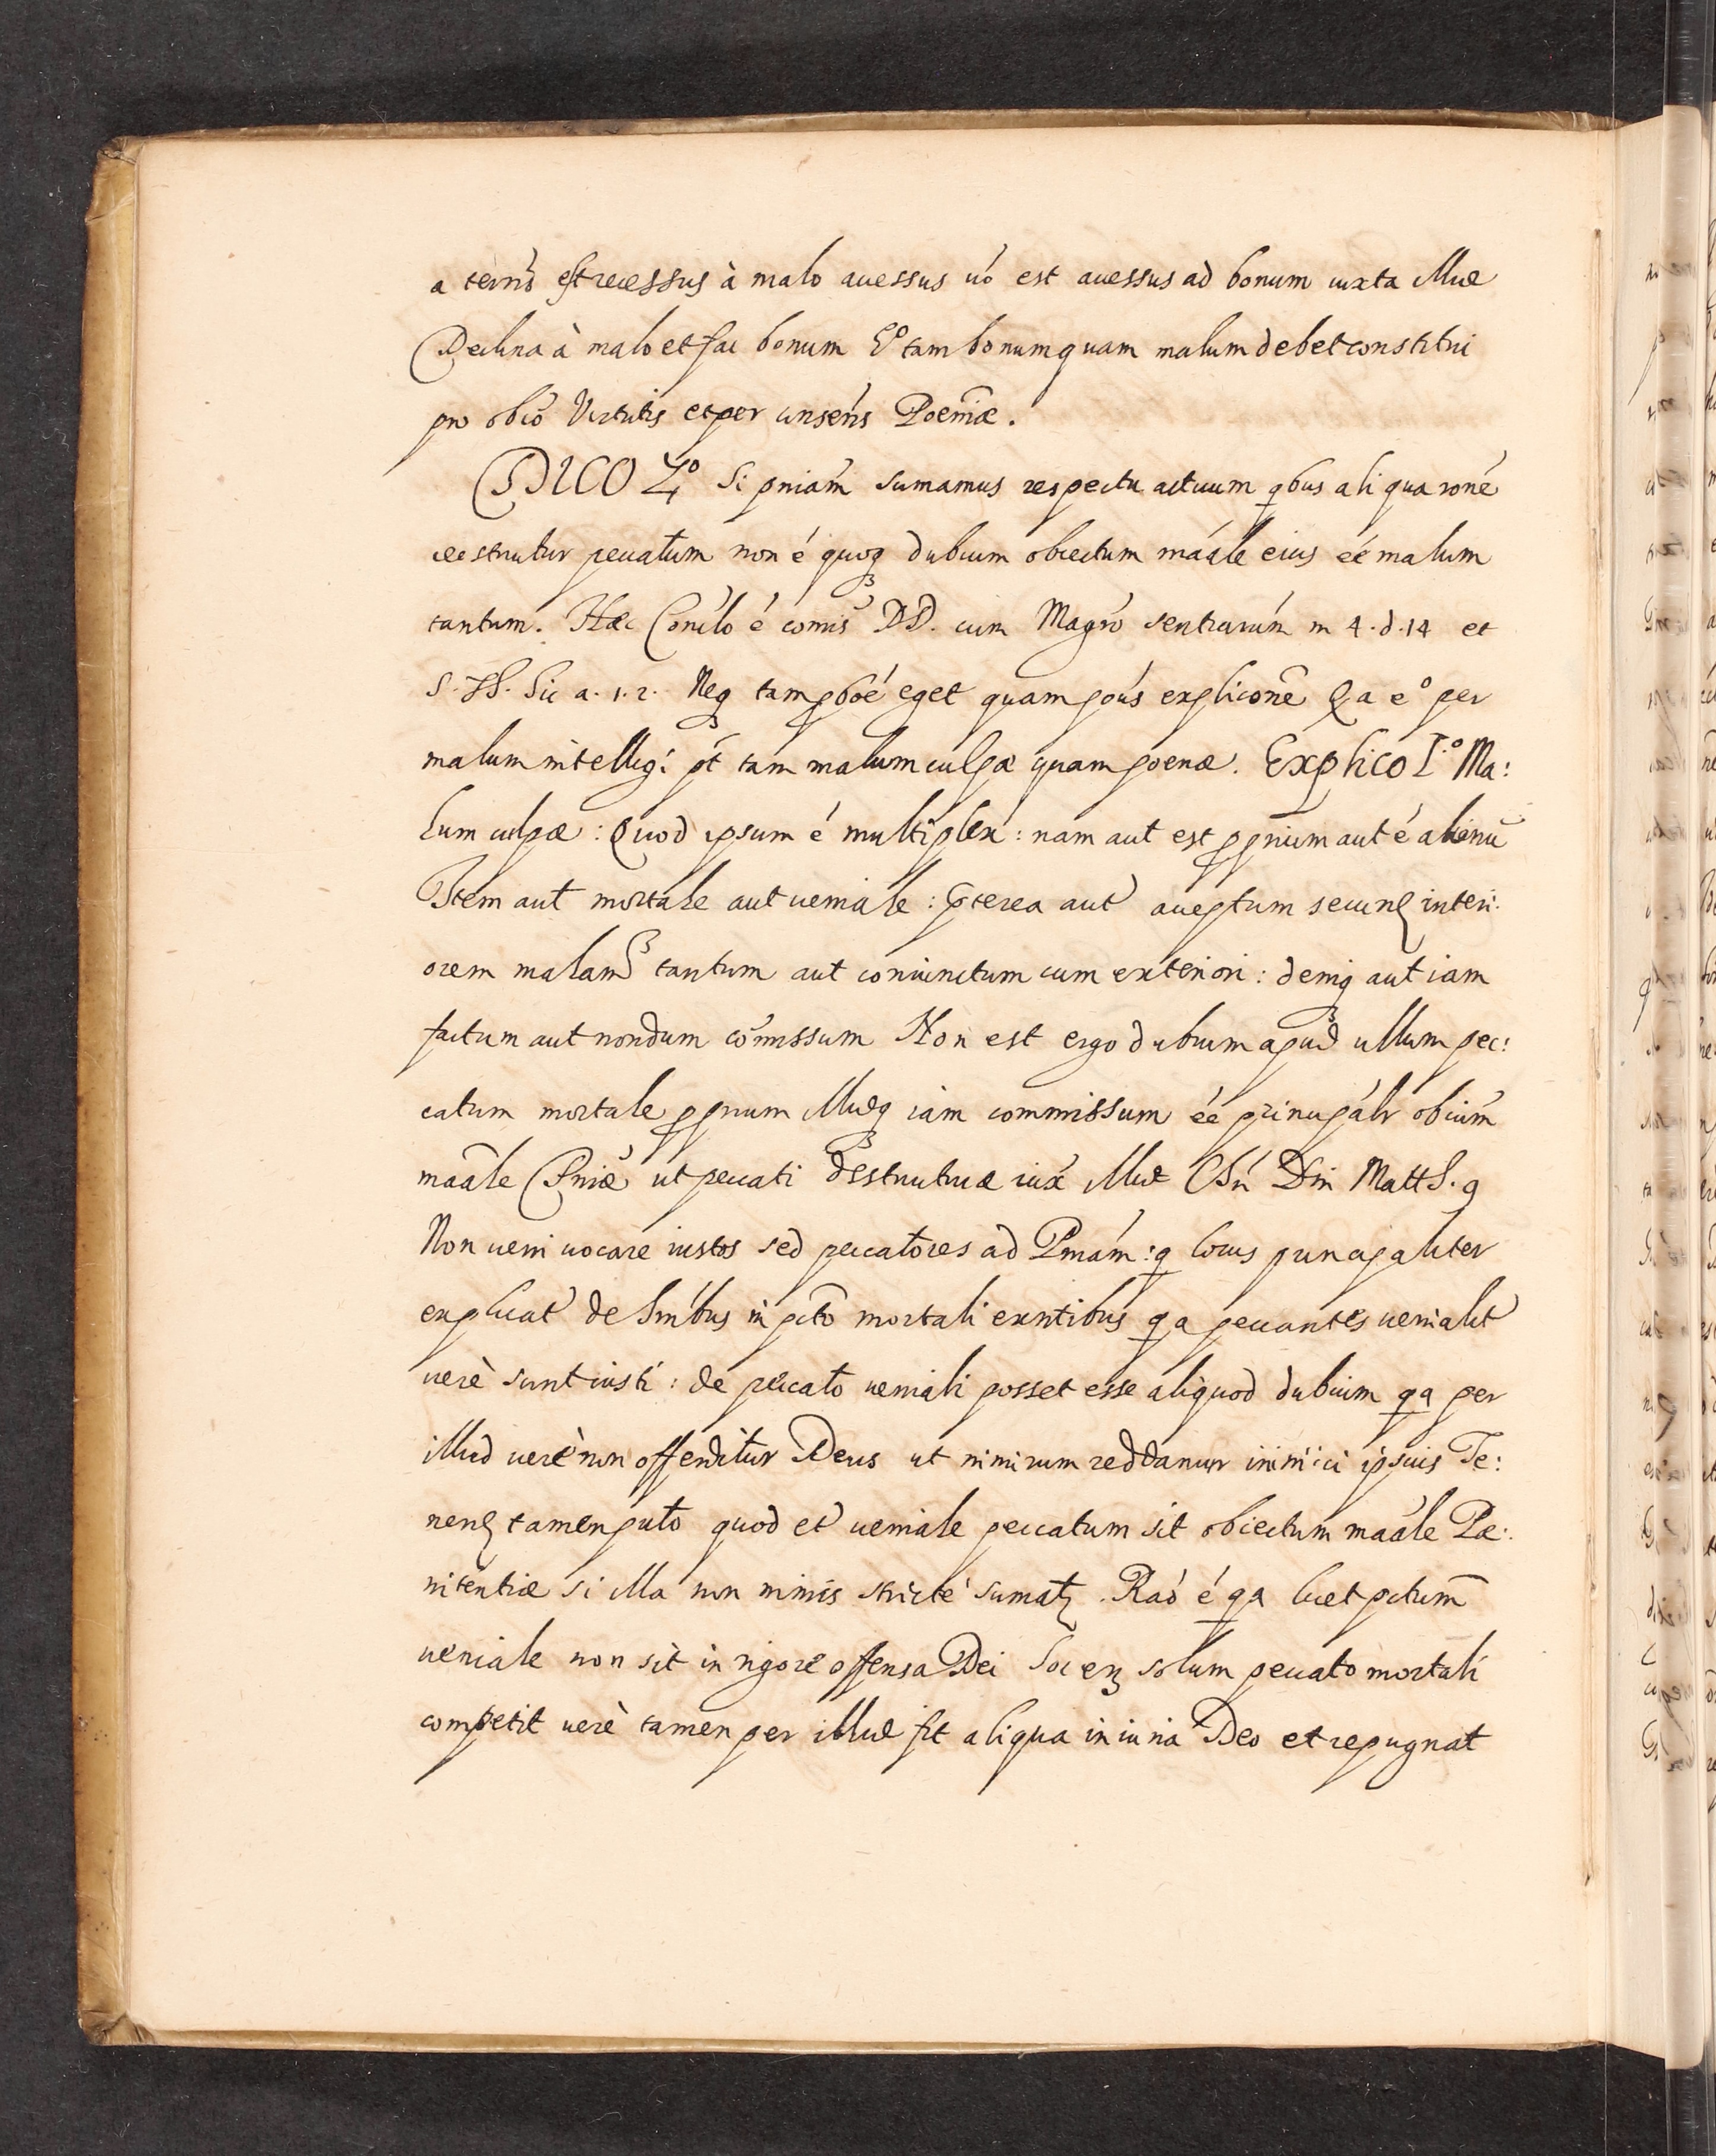 a termo est recessus à malo accessus uó est accessus ad bonum iuxta illud
Declina à malo et fac bonum Eº tam bonum quam malum debet constitui
pro obiō Virtutis et per conseńs Poeniae.
DICO 4º Si pniám sumamus respectu actuum qbus aliqua roné
destruitur peccatum non é quoq dubium obiectum maále eius eé malum
tantum. Haec Concló é comis DD. cum Magró sententiarúm in 4. d. 14 et
S. Th. Sic a. 1. 2. Neq tam pboé eget quam poús expliconé Qa eº per
malum intelligi pt́ tam malum culpae quam poenae. Explico Iº Ma:
lum culpae: Quod ipsum é multiplex: nam aut est ppriúm aut é alienū
Item aut mortale aut ueniale: pterea aut acceptum secund interi:
orem malam tantum aut coniunctum cum exteriori: deniq aut iam
factum aut nondum cōmissum Non est ergo dubium apud ullum pec:
catum mortale pprium illudq iam commissum eé principálr obiúm
maāle Pniae ut peccati destructiuae iux́ illud Dni Matth. 9
Non ueni uocare iustos sed peccatores ad Pniám: q locus principaliter
explicat de hnibus in pctō mortali exntibus qa peccantes uenialit
uerè sunt iusti: de peccato ueniali posset esse aliquod dubium qa per
illud uerè non offenditur Deus ut nimirum reddamur inimici ipsius Te:
nend tamen puto quod et ueniale peccatum sit obiectum maále Pae:
nitentiae si illa non nimis strictè sumat. Raó é qa licet pctum
ueniale non sit in rigore offensa Dei hoc en solum peccato mortali
competit uerè tamen per illud fit aliqua iniuria Deo et repugnat